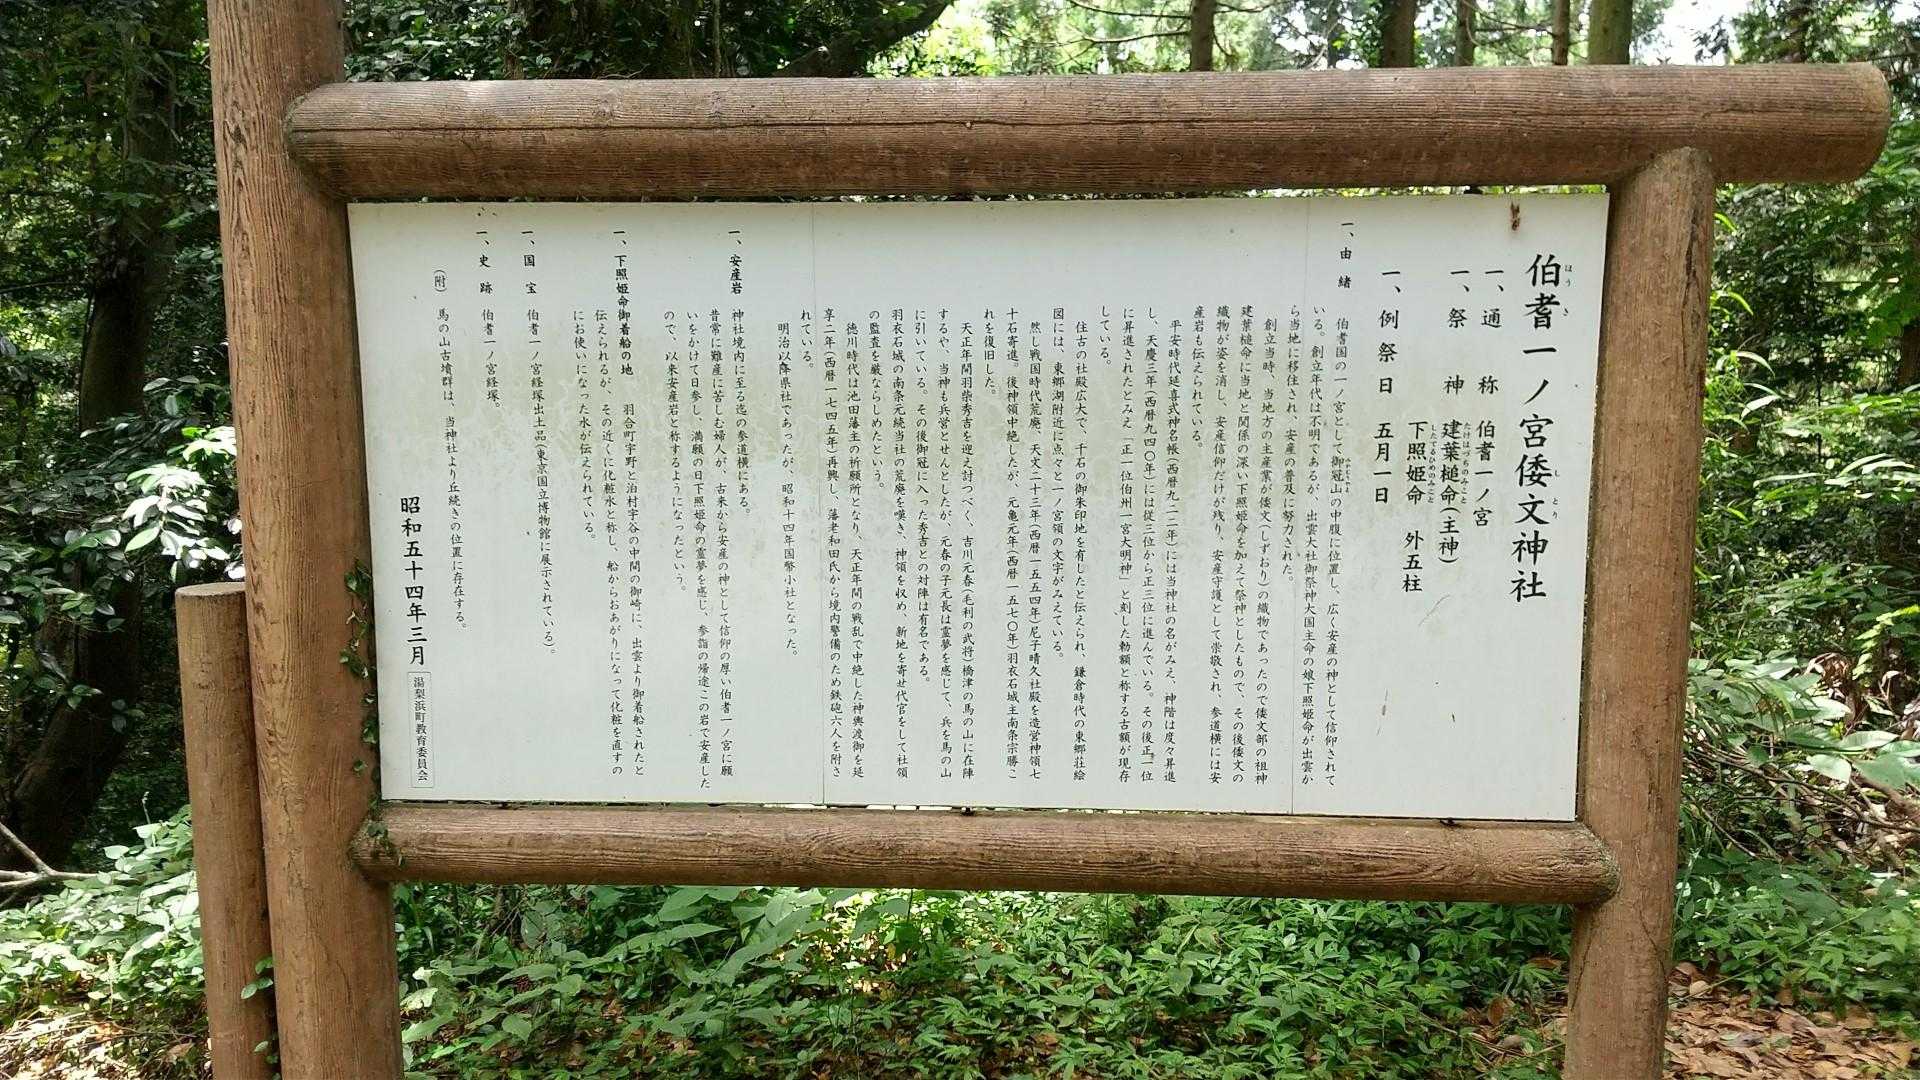 伯耆一ノ宮倭文神社
一、通称 伯耆一ノ宮
一、祭神 建葉槌命(主神)
下照姫命 外五柱
一、例祭日 五月一日
一、由緒 伯耆国の一ノ宮として御冠山の中腹に位置し、広く安産の神として信仰されて
いる。創立年代は不明であるが、出雲大社御祭神大国主命の娘下照姫命が出雲か
ら当地に移住され、安産の普及に努力された。
創立当時、当地方の主産業が倭文(しずおり)の織物であったので倭文部の祖神
建葉槌命に当地と関係の深い下照姫命を加えて祭神としたもので、その後倭文の
織物が姿を消し、安産信仰だけが残り、安産守護として崇敬され、参道横には安
産岩も伝えられている。
平安時代延喜式神名帳(西暦九二二年)には当神社の名がみえ、神階は度々昇進
し、天慶三年(西暦九四〇年)には従三位から正三位に進んでいる。その後正一位
に昇進されたとみえ「正一位伯州一宮大明神」と刻した勅額と称する古額が現存
している。
往古の社殿広大で、千石の御朱印地を有したと伝えられ、鎌倉時代の東郷荘絵
図には、東郷湖附近に点々と一ノ宮領の文字がみえている。
然し戦国時代荒廃、天文二十三年(西暦一五五四年)尼子晴久社殿を造営神領七
十石寄進。後神領中絶したが、元亀元年(西暦一五七〇年)羽衣石城主南条宗勝こ
れを復旧した。
天正年間羽柴秀吉を迎え討つべく、吉川元春(毛利の武将)橋津の馬の山に在陣
するや、当神も兵営とせんとしたが、元春の子元長は霊夢を感じて、兵を馬の山
に引いている。その後御冠に入った秀吉との対陣は有名である。
羽衣石城の南条元続当社の荒廃を嘆き、神領を収め、新地を寄せ代官をして社領
の監査を厳ならしめたという。
徳川時代は池田藩主の祈願所となり、天正年間の戦乱で中絶した神輿渡御を延
享二年(西暦一七四五年)再興し、藩老和田氏から境内警備のため鉄砲六人を附さ
れている。
明治以降県社であったが、昭和十四年国幣小社となった。
一、安産岩 神社境内に至る迄の参道横にある。
昔常に難産に苦しむ婦人が、古来から安産の神として信仰の厚い伯耆一ノ宮に願
いをかけて日参し、満願の日下照姫命の霊夢を感じ、参詣の帰途この岩で安産した
ので、以来安産岩と称するようになったという。
一、下照姫命御着船の地 羽合町宇野と泊村宇谷の中間の御崎に、出雲より御着船されたと
伝えられるが、その近くに化粧水と称し、船からおあがりになって化粧を直すの
にお使いになった水が伝えられている。
一、国宝 伯耆一ノ宮経塚出土品(東京国立博物館に展示されている)。
一、史跡 伯耆一ノ宮経塚。
(附) 馬の山古墳群は、当神社より丘続きの位置に存在する。
昭和五十四年三月 湯梨浜町教育委員会